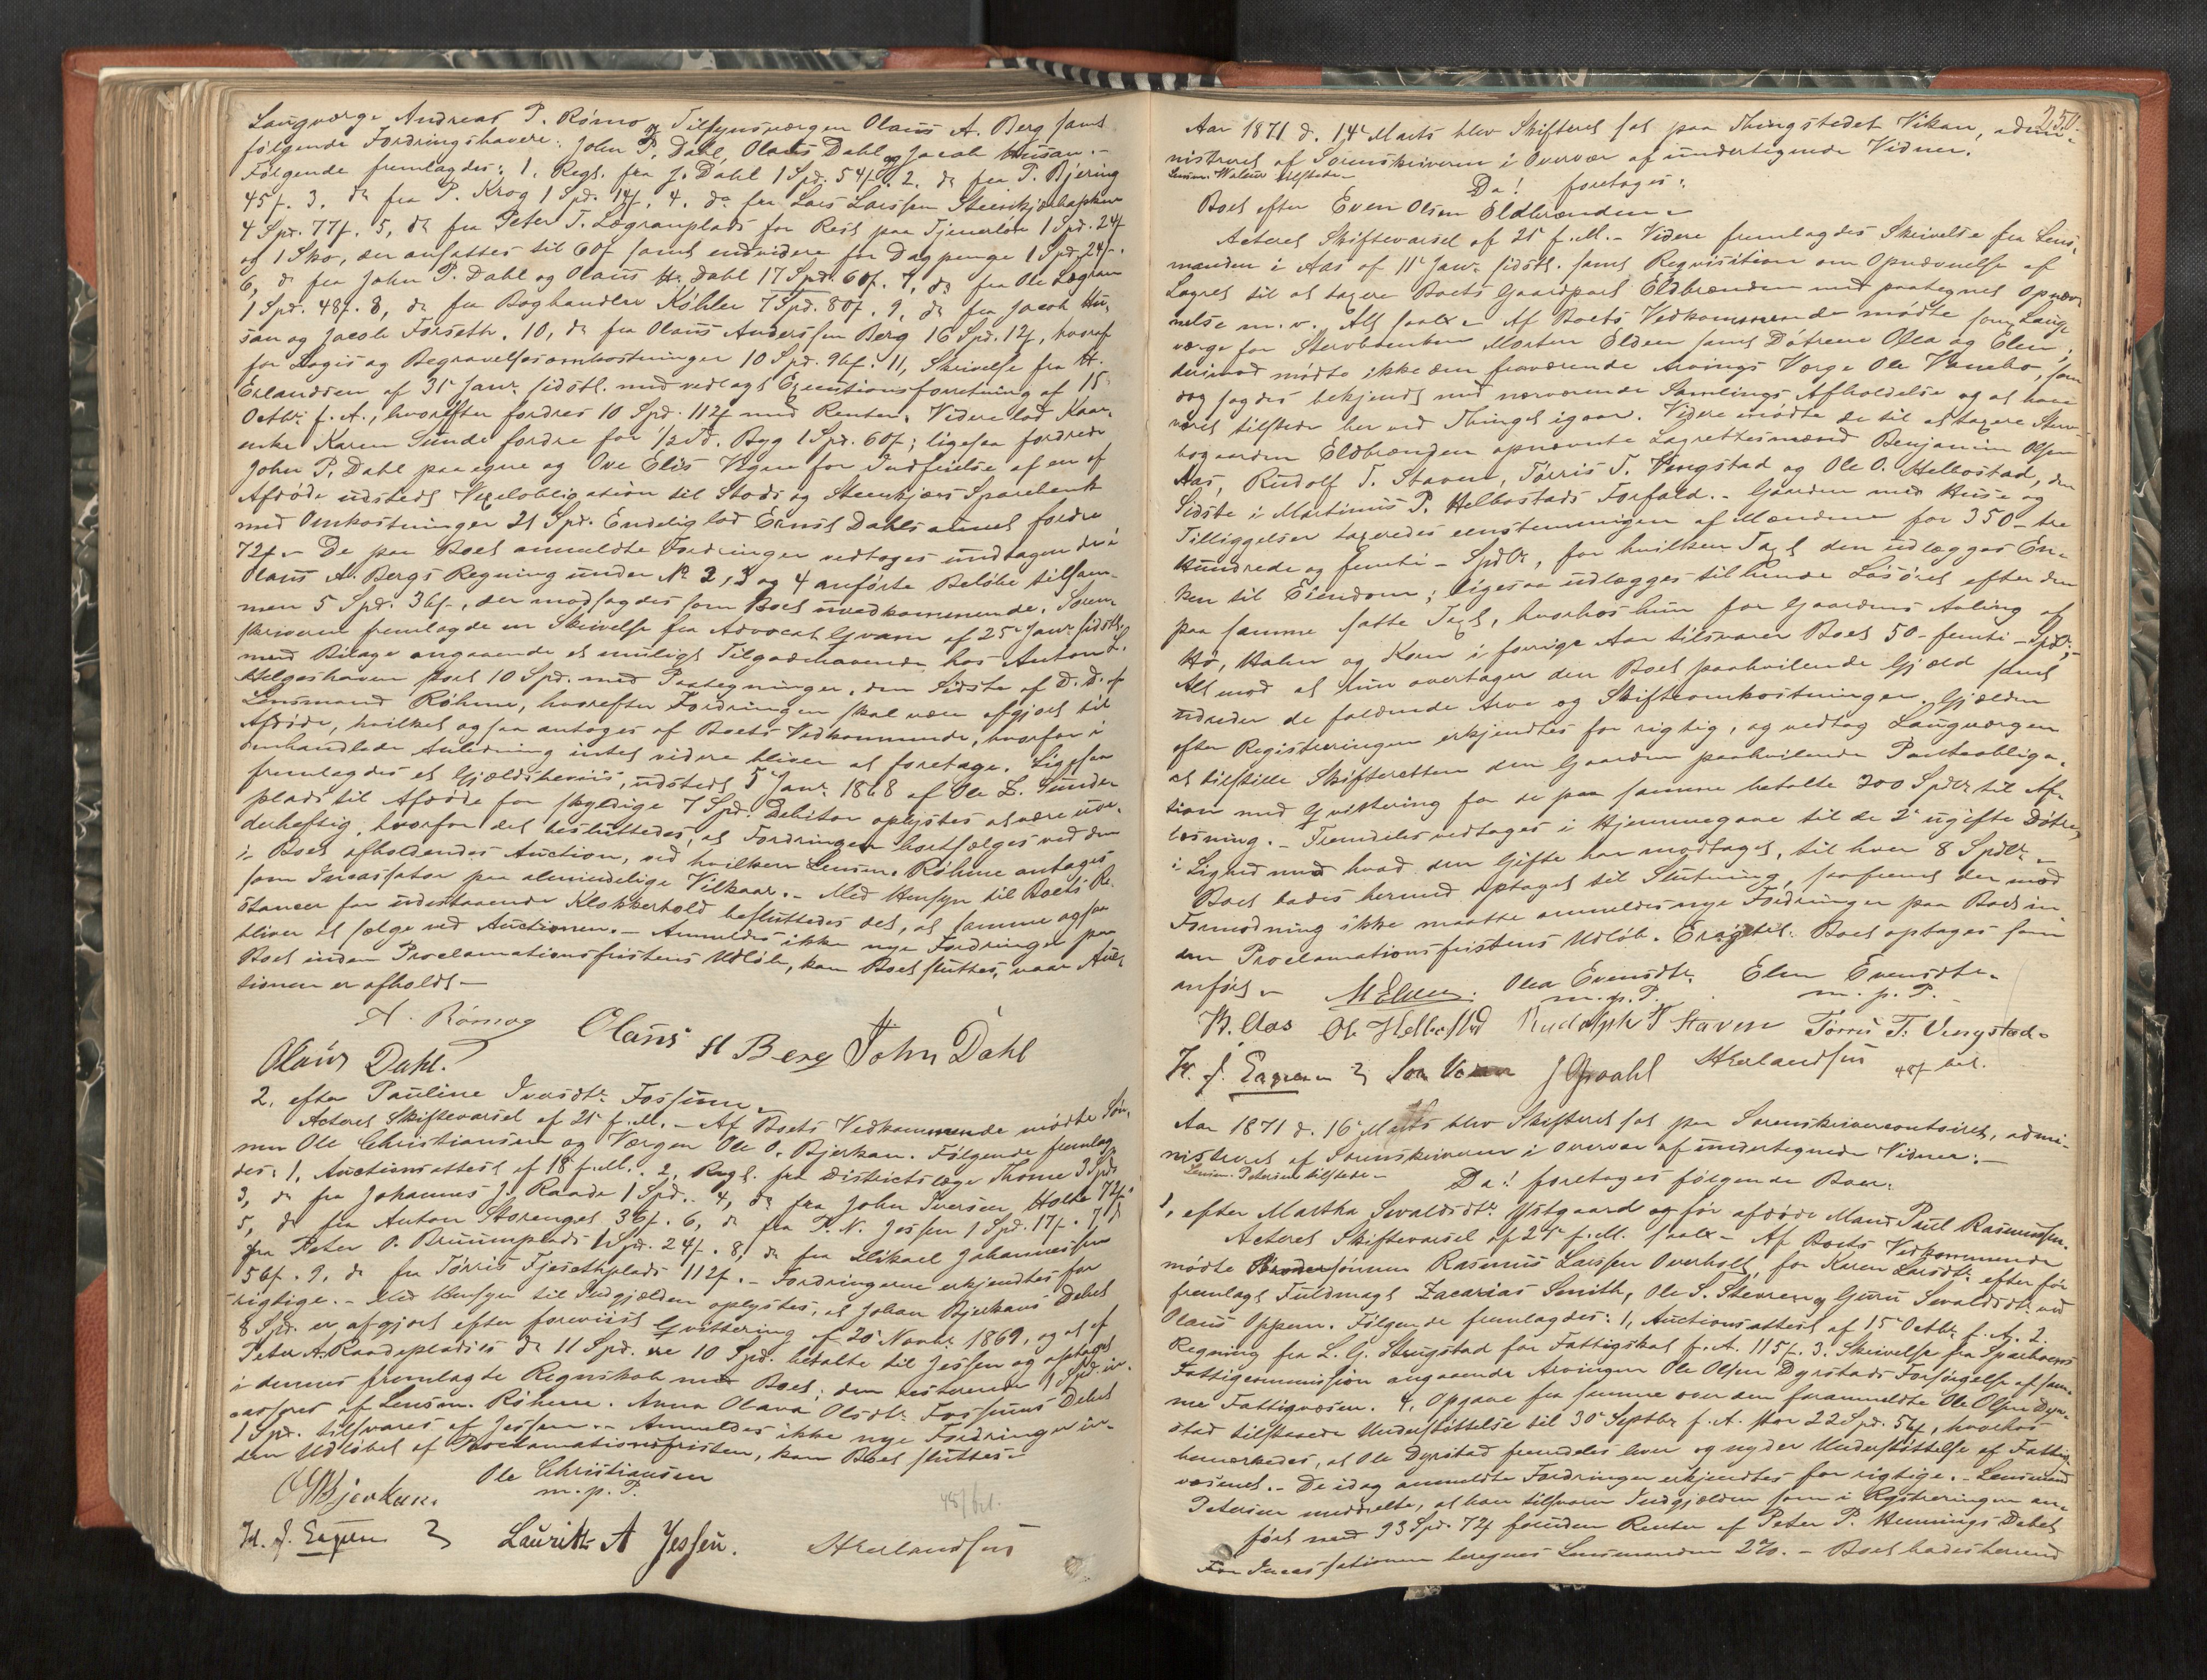 Laugværge Andreas P. Rømo og Tilsynsværgen Olaus A. Berg samt
følgende Fordringshavere: John P. Dahl, Olaus Dahl og Jacob Husan.-
Følgende fremlagdes: 1, Regl. fra J. Dahl 1 Spd. 54 f. 2, do fra P. Bjering
45 f. 3, do fra P. Krog 1 Spd. 14 f. 4, do fra Lars Larssen
4 Spd. 77 f. 5, do fra Peter T. Lægranplads for Rest paa Tjenerløn 1 Spd. 24 f
og 1 Sko, der ansattes til 60 f samt endvidere for Dagpenge 1 Spd. 24 f.
6, do fra John P. Dahl og Olaus H. Dahl 17 Spd. 60 f. 7, do fra Ole Lægran
1 Spd. 48 f. 8, do fra Boghandler Köhler 7 Spd. 80 f. 9, do fra Jacob Hu-
san og Jacob Forseth. 10, do fra Olaus Anderssen Berg 16 Spd. 12 f, hvoraf
for Logis og Begravelsesomkostninger 10 Spd. 96 f. 11, Skrivelse fra H.
Erlandsen af 31' Janr. sidstl. med vedlagt Executionsforretning af 15'
Octbr. f. A., hvorefter fordres 10 Spd. 112 f med Renter. Videre lod Kaar-
enke Karen Sunde fordre for 1/2 Td. Byg 1 Spd. 60 f; ligesaa fordrede
John P. Dahl paa egne og Ove Elis Vegne for Indfrielse af en af
Afdøde udstedt Vexelobligation til Stods og Steenkjærs Sparebank
med Omkostninger 21 Spd. Endelig lod Ernst Dahlsaunet fordre
72 f.- De paa Boet anmeldte Fordringer vedtoges undtagen de i
Olaus A. Bergs Regning under No 2, 3 og 4 anførte Beløbe tilsam-
men 5 Spd. 36 f., der modsagdes som Boet uvedkommende. Soren-
skriveren fremlagde en Skrivelse fra Advocat Gram af 25' Janr. sidstl.
med Bilage angaaende et muligt Tilgodehavende hos Anton L.
Helgeshaven stort 10 Spd. med Paategninger, den Sidste af D. D. af
Lensmand Röhme, hvorefter Fordringen skal være afgjort til
Afdøde, hvilket ogsaa antoges af Boets Vedkommende, hvorfor i
omhandlede Anledning intet videre bliver at foretage. Ligesaa
fremlagdes et Gjældsbeviis, udstedt 5' Janr. 1868 af Ole L. Sunde-
plads til Afdøde for skyldige 7 Spd. Debitor oplystes at være uve-
derheftig, hvorfor det besluttedes, at Fordringen bortsælges ved den
i Boet afholdendes Auction, ved hvilken Lensm. Röhme antages
som Incassator paa almindelige Vilkaar.- Med Hensyn til Boets Re-
stancer for udestaaende Klokkerhold besluttedes det, at samme ogsaa
bliver at sælge ved Auctionen.- Anmeldes ikke nye Fordringer paa
Boet inden Proclamationsfristens Udløb, kan Boet sluttes, naar Auc-
tionen er afholdt.-
A. Rømog Olaus A Berg John Dahl
Olaus Dahl.
2, efter Pauline Iversdtr. Fossum.-
Acteret Skiftevarsel af 21' f. M.- Af Boets Vedkommende mødte Søn-
nen Ole Christiansen og Værgen Ole O. Bjerkan. Følgende fremlag-
des: 1, Auctionsattest af 18' f. M. 2, Regl. fra Districtslæge Thome 3 Spd.
3, do fra Johannes J. Raade 1 Spd. 4, do fra John Iversen Holte 72 f.
5, do fra Anton Storenget 36 f. 6, do fra P. N. Jessen 1 Spd. 17 f. 7, do
fra Peter O. Bruumplads 1 Spd. 24 f. 8, do fra Mikael Johannessen
56 f. 9, do fra Tørris Fjesethplads 112 f.- Fordringerne erkjendtes for
rigtige.- Med Hensyn til Indgjælden oplystes, at Johan Bjerkans Debet
8 Spd. er afgjort efter foreviist Qvittering af 20' Novbr. 1869, og at af
Peter A. Raadeplads's do 11 Spd. ere 10 Spd. betalte til Jessen og optaget
i dennes fremlagte Regnskab med Boet; den resterende 1 Spd. in-
casseret af Lensm. Röhme. Anna Olava Olsdtr. Fossums Debet
1 Spd. tilsvares af Jessen.- Anmeldes ikke nye Fordringer in-
den Udløbet af Proclamationsfristen, kan Boet sluttes.-
OBjerkan. Ole Christiansen
m. p. P.
48 f bet.
Lauritz A Jessen. HErlandsen
250.
Aar 1871 d. 14' Marts blev Skifteret sat paa Thingstedet Vikan, admi-
nistreret af Sorenskriveren i Overvær af undertegnede Vidner.
Lensm. Walseth tilstede.-
Da! foretoges:
Boet efter Even Olsen Eldbrænden.-
Acteret Skiftevarsel af 21' f. M.- Videre fremlagdes Skrivelse fra Lens-
manden i Aas af 11' Janr. sidstl. samt Reqvisition om Opnævnelse af
Lagret til at taxere Boets Gaardpart Eldbrænden med paategnet Opnæv-
nelse m. v. Alt saal.- Af Boets Vedkommende mødte som Laug-
værge for Stervboenken Morten Elden samt Døtrene Olea og Elen;
derimod mødte ikke den fraværende Arvings Værge Ole Vanebo, som
dog sagdes bekjendt med nærværende Samlings Afholdelse og at have
været tilstede her ved Thinget igaar. Videre mødte de til at taxere Sterv-
bogaarden Eldbrænden opnævnte Lagrettesmænd Benjamin Olsen
Aas, Rudolf T. Staven, Tørris T. Vengstad og Ole O. Helbostad, den
Sidste i Martinus P. Helbostads Forfald.- Gaarden med Huse og
Tilliggelser taxeredes eenstemmigen af Mændene for 350 - tre
Hundrede og femti - Spdlr, for hvilken Taxt den udlægges En-
ken til Eiendom; ligesaa udlægges til hende Løsøret efter den
paa samme satte Taxt, hvorhos hun for Gaardens Avling af
Hø, Halm og Korn i forrige Aar tilsvarer Boet 50 - femti - Spdlr,
Alt mod at hun overtager den Boet paahvilende Gjæld samt
udreder de faldende Arve og Skifteomkostninger. Gjælden
efter Registreringen erkjendtes for rigtig, og vedtog Laugværgen
at tilstille Skifteretten den Gaarden paahvilende Panteobliga-
tion med Qvittering for de paa samme betalte 200 Spdlr til Af-
læsning.- Fremdeles vedtoges i Hjemmegave til de 2' ugifte Døtre,
i Lighed med hvad den Gifte har modtaget, til hver 8 Spdlr.-
Boet lodes hermed optaget til Slutning, saafremt der mod
Formodning ikke maatte anmeldes nye Fordringer paa Boet in-
den Proclamationsfristens Udløb. Eragtet: Boet optages som
anført.- MElden. Olea Evensdtr. Elen Evensdtr.
m. p. P. m. p. P.
B. Aas Ole Helbostad Rudolph T Staven Tørris T. Vengstad.
HErlandsen 48 f bet.
Aar 1871 d. 16' Marts blev Skifteret sat paa Sorenskrivercontoiret, admi-
nistreret af Sorenskriveren i Overvær af undertegnede Vidner.-
Lensm. Petersen tilstede.-
Da! foretoges følgende Boer:
1, efter Martha Sevaldsdtr. Ystgaard og før afdøde Mand Paul Rasmussen.
Acteret Skiftevarsel af 24' f. M. saal.- Af Boets Vedkommende
mødte Brodersønnen Rasmus Larssen Overholt, for Karen Larsdtr. efter før
fremlagt Fuldmagt Zacarias Smith, Ole S. Stevren og Guru Sevaldsdtr. ved
Olaus Oppem. Følgende fremlagdes: 1, Auctionsattest af 15' Octbr. f. A. 2.
Regning fra L. G. Strugstad for Fattigskat f. A. 115 f. 3. Skrivelse fra Sparboens
Fattigcommission angaaende Arvingen Ole Olsen Dyrstads Forsørgelse af sam-
me Fattigvæsen. 4, Opgave fra samme over den foranmeldte Ole Olsen Dyr-
stad tilstaaede Understøttelse til 30' Septbr. f. A. stor 22 Spd. 54 f, hvorhos
bemærkedes, at Ole Dyrstad fremdeles lever og nyder Understøttelse af Fattig-
væsenet.- De idag anmeldte Fordringer erkjendtes for rigtige.- Lensmand
Petersen meddeelte, at han tilsvarer Indgjælden som i Registreringen an-
ført med 93 Spd. 72 f foruden Renter af Peter P. Hennings Debet
For Incassationen beregnes Lensmanden 2 %.- Boet lodes hermed